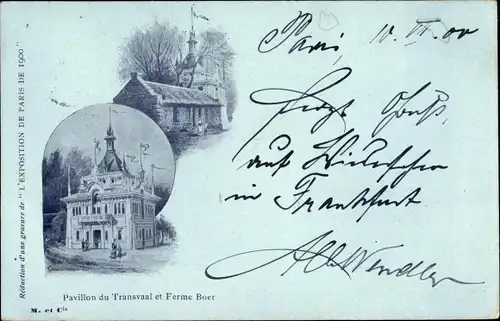 Réduction d'une gravure de "L'EXPOSITION DE PARIS DE 1900"
Paris, 10. VI. 00
Gruß,
auf Wiedersehen
in Frankfurt
Wendler
Pavillon du Transvaal et Ferme Boer
M. et Cie